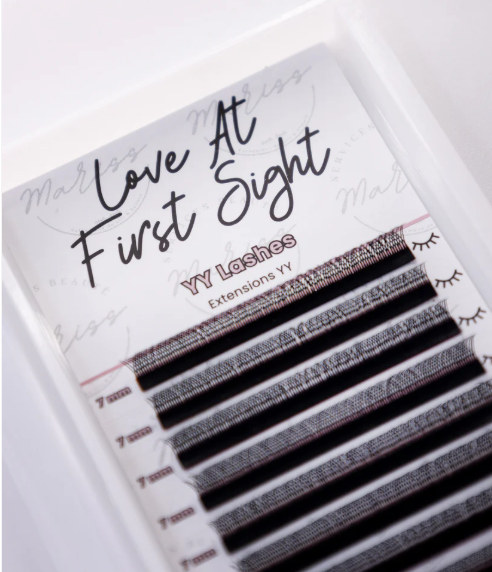 Love At
First Sight
YY Lashes
Extensions YY
7 mm
7 mm
7 mm
7 mm
7 mm
Mariss
Mariss
Mariss